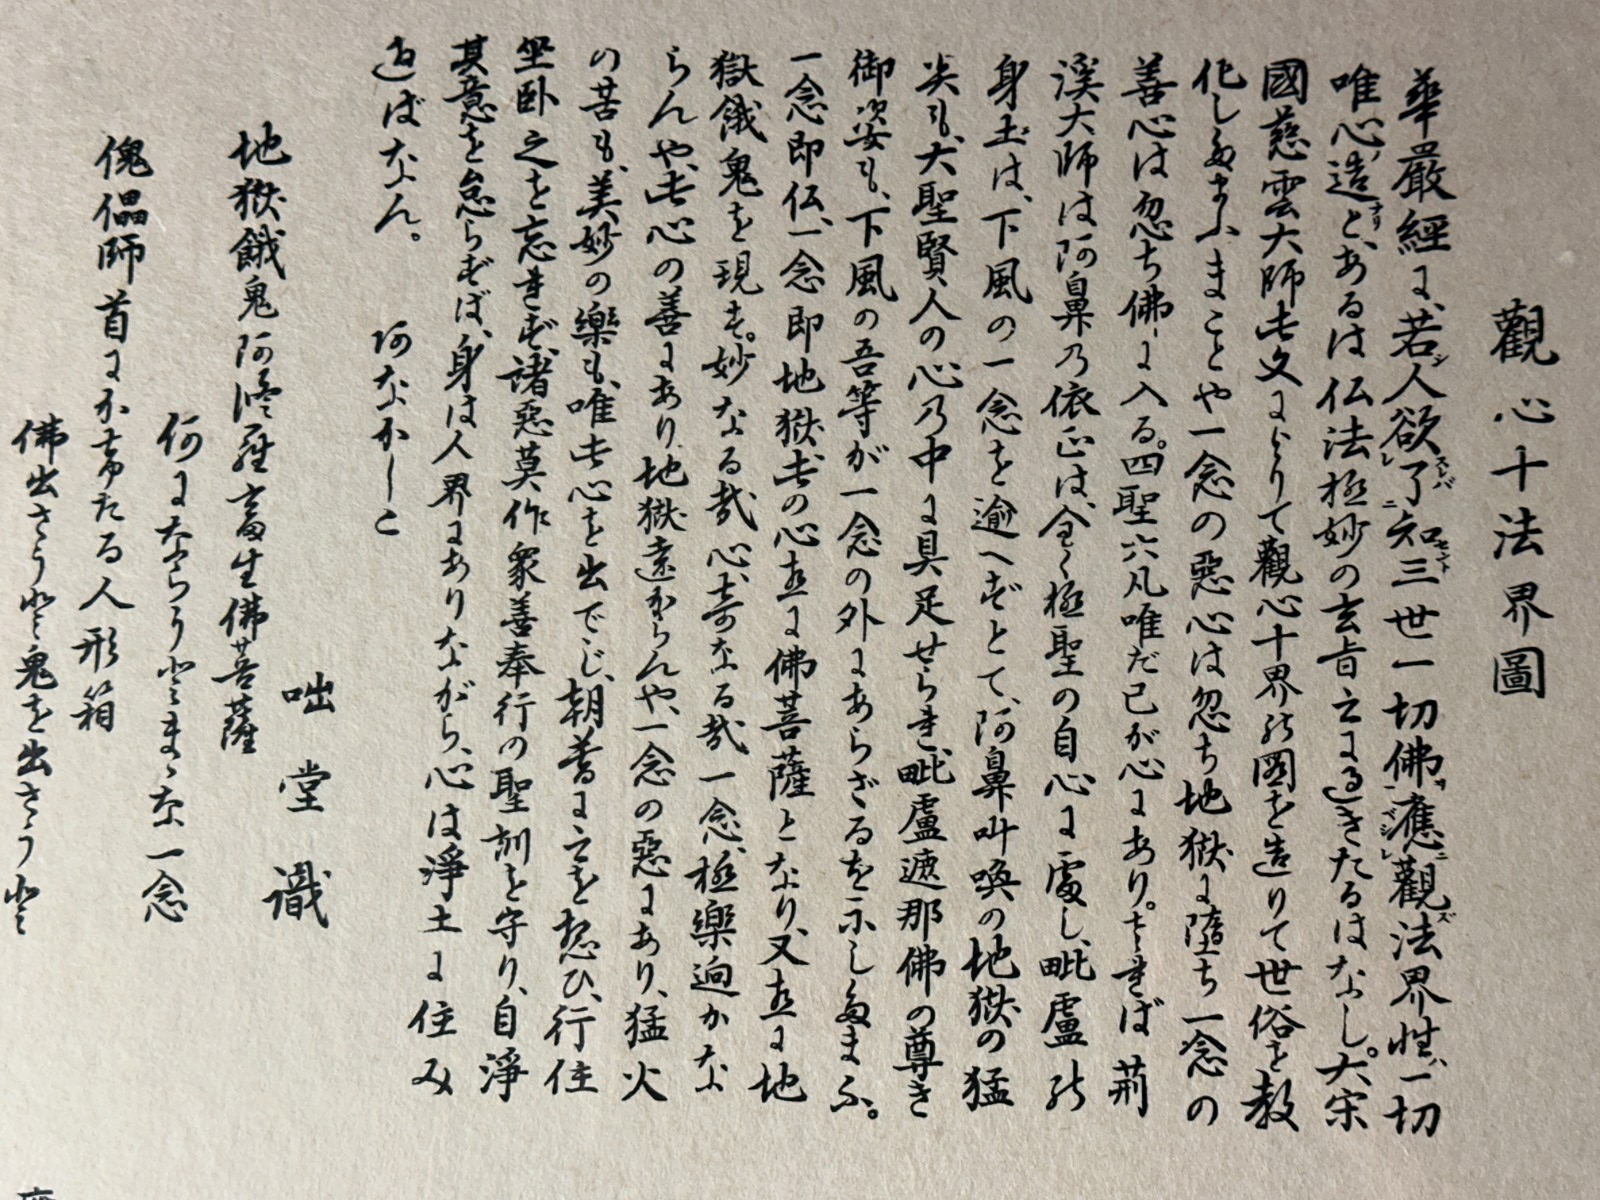 觀心十法界圖
華嚴經に、若人欲了知三世一切佛、應觀法界性、一切
唯心造と、あるは仏法極妙の玄旨之に過きたるはなし。大宋
國慈雲大師此文によりて觀心十界の図を造りて世俗を教
化したまふまことや一念の惡心は忽ち地獄に墮ち一念の
善心は忽ち佛に入る。四聖六凡唯だ己が心にあり。されば荊
溪大師は阿鼻の依正は、全く極聖の自心に處し、毗盧の
身土は、下風の一念を逾へずとて、阿鼻叫喚の地獄の猛
炎も、大聖賢人の心の中に具足せられ、毗盧遮那佛の尊き
御姿も、下風の吾等が一念の外にあらざるを示したまふ。
一念即仏、一念即地獄、此の心直に佛菩薩となり、又直に地
獄餓鬼を現す。妙なる哉心、奇なる哉一念、極樂迥かな
らんや、此心の善にあり、地獄遠からんや、一念の惡にあり、猛火
の苦も、美妙の樂も、唯此心を出でじ、朝暮に之を想ひ、行住
坐臥之を忘れず、諸惡莫作衆善奉行の聖訓を守り、自淨
其意を怠らずば、身は人界にありながら、心は淨土に住み
遊ばなん。 阿なかしこ
咄堂識
地獄餓鬼阿修羅畜生佛菩薩
何にならうとまゝな一念
傀儡師首にかけたる人形箱
佛出さうと鬼を出さうと